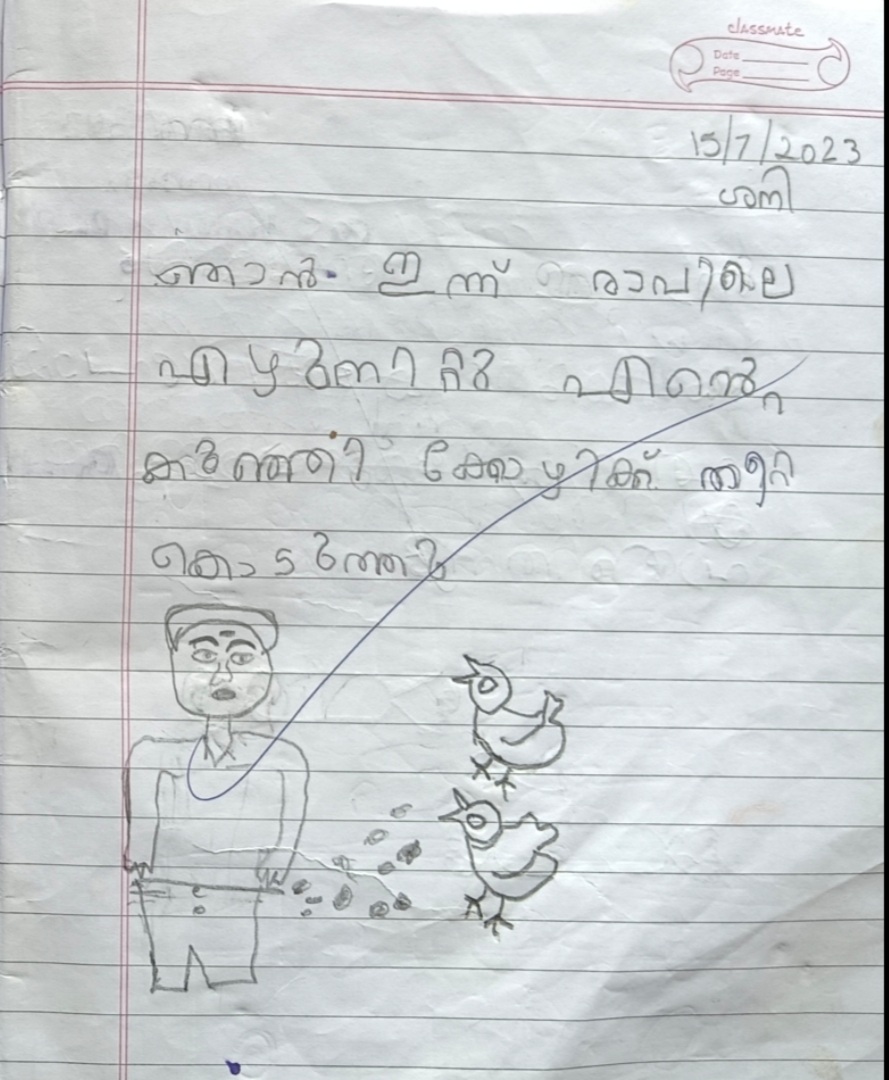 classmate
Date
Page
15/7/2023
ശനി
ഞാൻ ഇന്ന് രാവിലെ
എഴുന്നിറ്റു എന്റെ
കുഞ്ഞി കോഴിക്ക് തീറ്റ
കൊടുത്തു